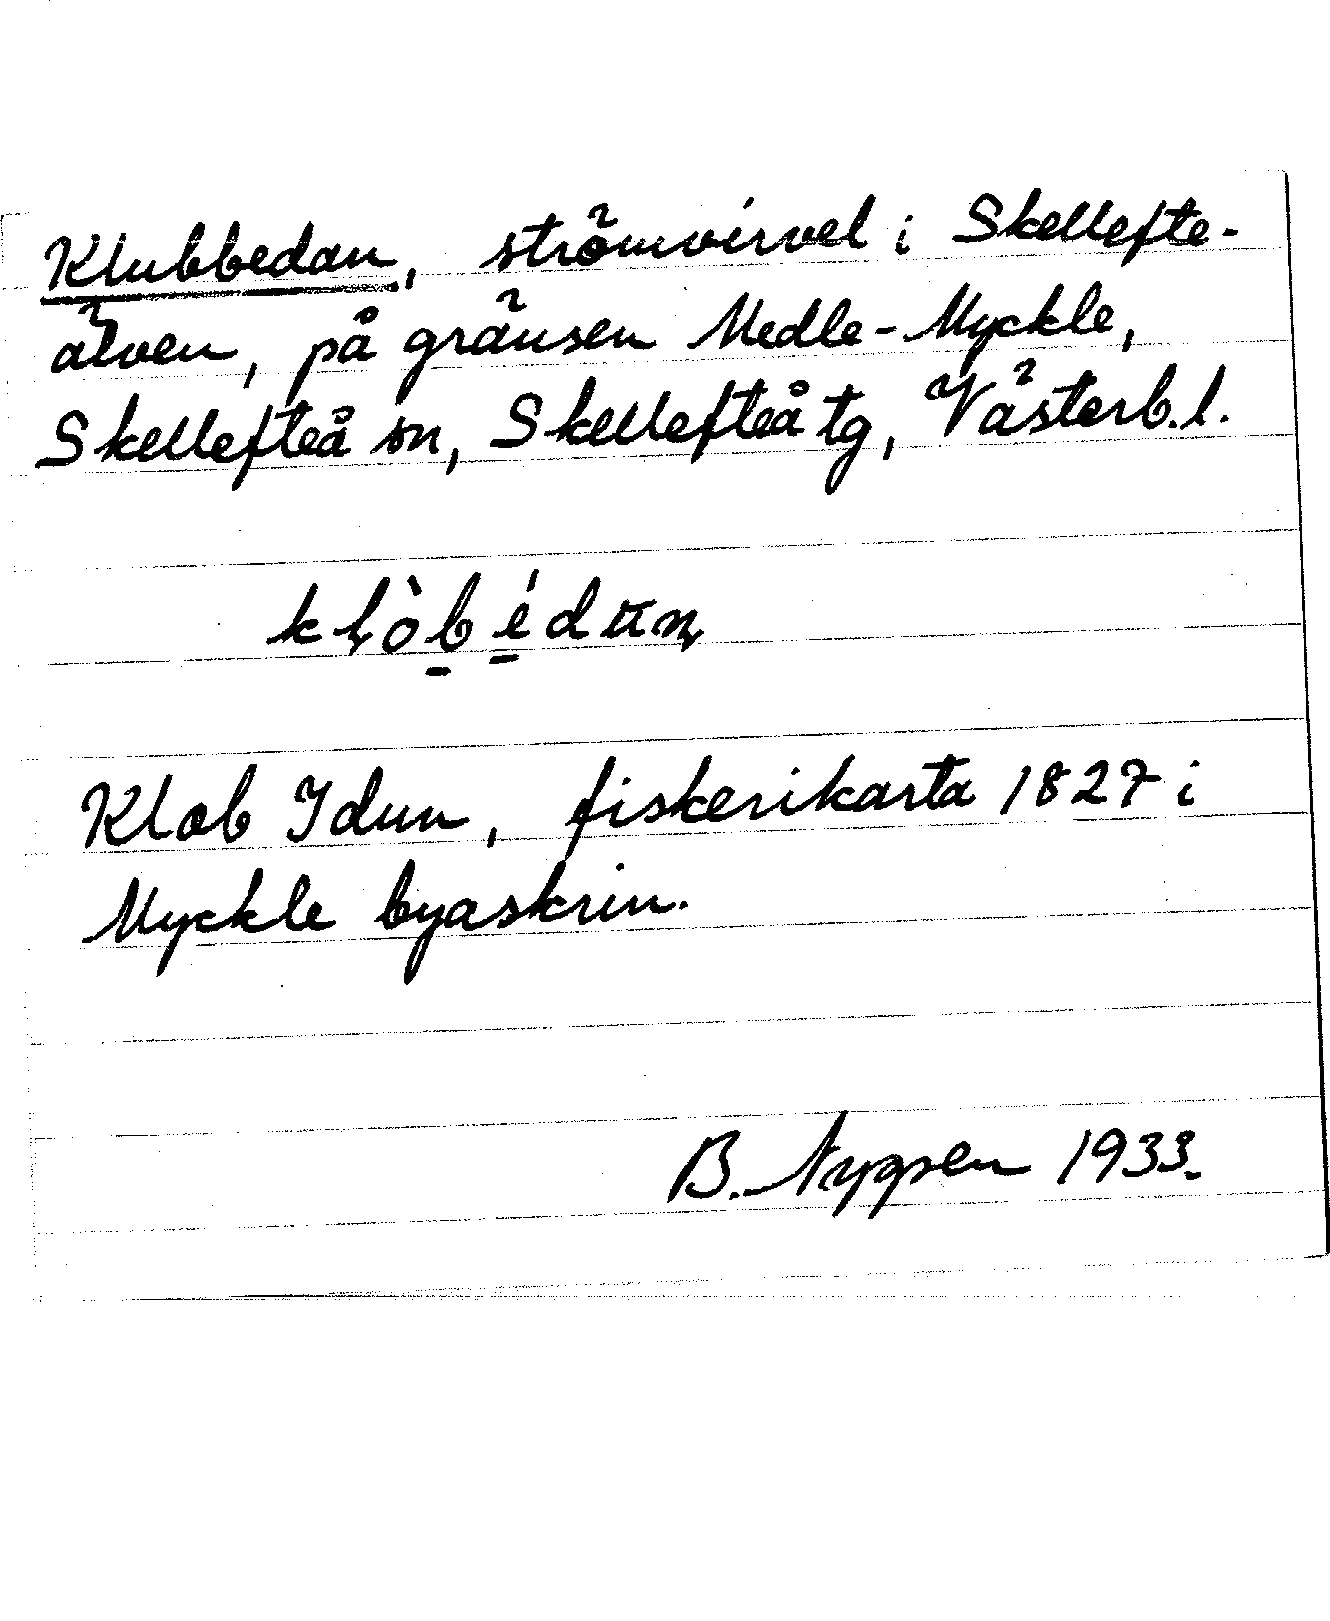 Klubbedan, strömvirvel i Skellefte-
älven, på gränsen Medle-Myckle,
Skellefteå sn, Skellefteå tg, Västerb. l.
Klob Idun, fiskerikarta 1827 i
Myckle byaskrin.
B. 1933.